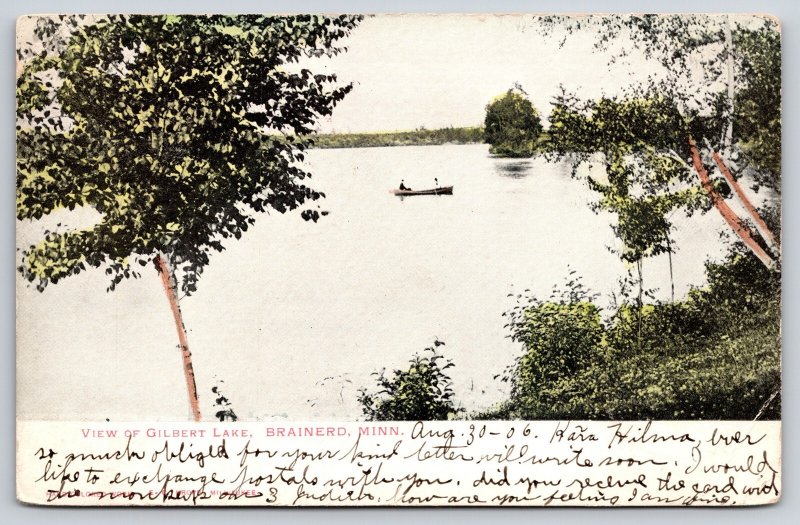 VIEW OF GILBERT LAKE, BRAINERD, MINN. Aug. 30-06. Kära Hilma, ever
so much obliged for your kind letter will write soon. I would
like to exchange postals with you, did you receive the card with
the monkeys on 3 Indica. How are you feeling I am fine.